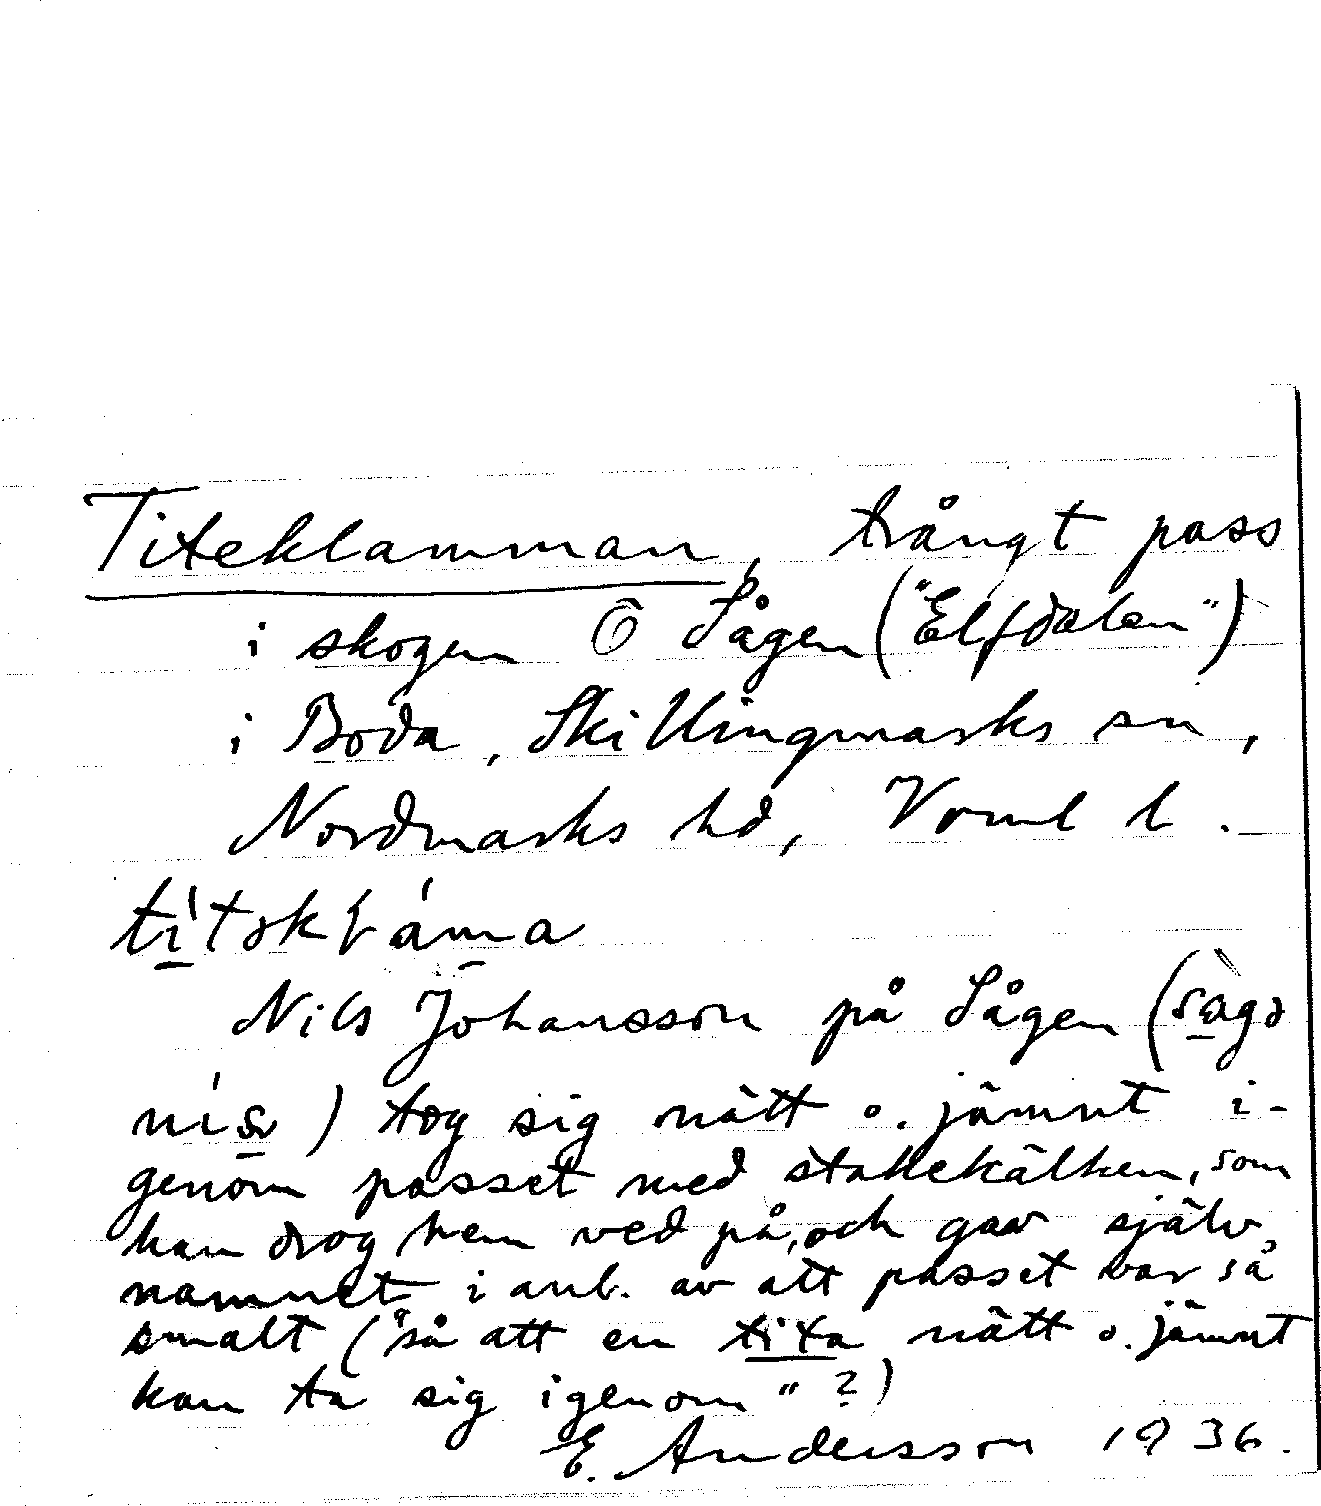 Titeklamman, trångt pass
i skogen Ö Sågen ("Elfdalen")
i Boda, Skillingmarks sn,
Nordmarks hd, Vrml l.
Nils Johansson på Sågen (
) tog sig nätt o. jämnt i-
genom passet med stakekälken, som
han drog hem ved på, och gav själv
namnet i anl. av att passet var så
smalt ("så att en tita nätt o. jämnt
kan ta sig igenom" ?)
E. Andersson 1936.